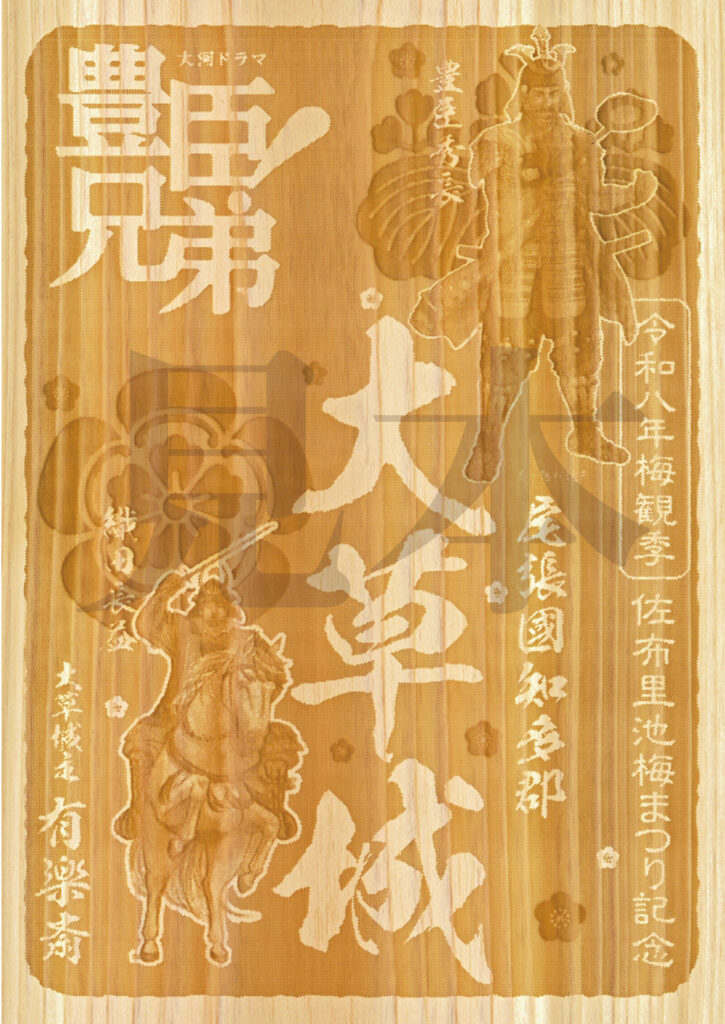 大河ドラマ
豊臣兄弟!
豊臣秀長
令和八年梅観季
佐布里池梅まつり記念
尾張國知多郡
大草城
織田長益
大草城主
有楽斎
見本